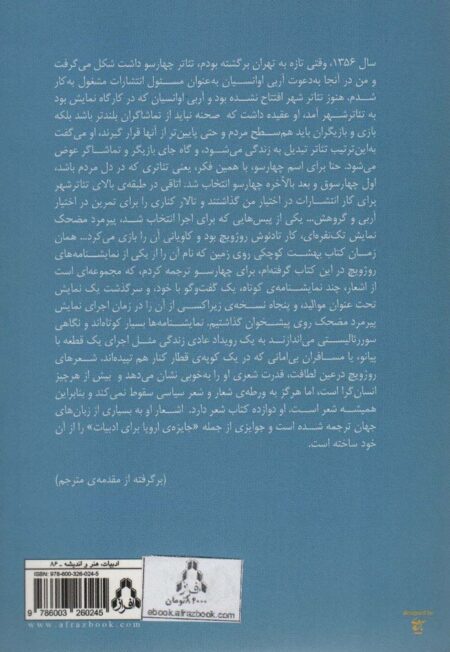 سال ۱۳۵۶، وقتی تازه به تهران برگشته بودم، تئاتر چهارسو داشت شکل می‌گرفت
و من در آنجا به‌دعوت آربی اوانسیان به‌عنوان مسئول انتشارات مشغول به‌کار
شدم. هنوز تئاتر شهر افتتاح نشده بود و آربی اوانسیان که در کارگاه نمایش بود
به تئاترشهر آمد، او عقیده داشت که صحنه نباید از تماشاگران بلندتر باشد بلکه
بازی و بازیگران باید هم‌سطح مردم و حتی پایین‌تر از آنها قرار گیرند، او می‌گفت
به‌این‌ترتیب تئاتر تبدیل به زندگی می‌شود، و گاه جای بازیگر و تماشاگر عوض
می‌شود. حتا برای اسم چهارسو، با همین فکر، یعنی تئاتری که در دل مردم باشد،
اول چهارسوق و بعد بالاخره چهارسو انتخاب شد. اتاقی در طبقه‌ی بالای تئاترشهر
برای کار انتشارات در اختیار من گذاشتند و تالار کناری را برای تمرین در اختیار
آربی و گروهش... یکی از پیس‌هایی که برای اجرا انتخاب شد، پیرمرد مضحک
نمایش تک‌نفره‌ای، کار تادئوش روزویچ بود و کاویانی آن را بازی می‌کرد... همان
زمان کتاب بهشت کوچکی روی زمین که نام آن را از یکی از نمایشنامه‌های
روزویچ در این کتاب گرفته‌ام، برای چهارسو ترجمه کردم، که مجموعه‌ای است
از اشعار، چند نمایشنامه‌ی کوتاه، یک گفت‌وگو با خود، و سرگذشت یک نمایش
تحت عنوان موالید، و پنجاه نسخه‌ی زیراکسی از آن را در زمان اجرای نمایش
پیرمرد مضحک روی پیشخوان گذاشتیم. نمایشنامه‌ها بسیار کوتاه‌اند و نگاهی
سوررئالیستی می‌اندازند به یک رویداد عادی زندگی مثل اجرای یک قطعه با
پیانو، یا مسافران بی‌امانی که در یک کوپه‌ی قطار کنار هم تپیده‌اند. شعرهای
روزویچ درعین لطافت، قدرت شعری او را به‌خوبی نشان می‌دهد و بیش از هرچیز
انسان‌گرا است، اما هرگز به ورطه‌ی شعار و شعر سیاسی سقوط نمی‌کند و بنابراین
همیشه شعر است. او دوازده کتاب شعر دارد. اشعار او به بسیاری از زبان‌های
جهان ترجمه شده است و جوایزی از جمله «جایزه‌ی اروپا برای ادبیات» را از آن
خود ساخته است.
(برگرفته از مقدمه‌ی مترجم)
ادبیات، هنر و اندیشه - ۸۶
ISBN: 978-600-326-024-5
9 786003 260245
www.afrazbook.com
افراز
ebook.afrazbook.com
designed by